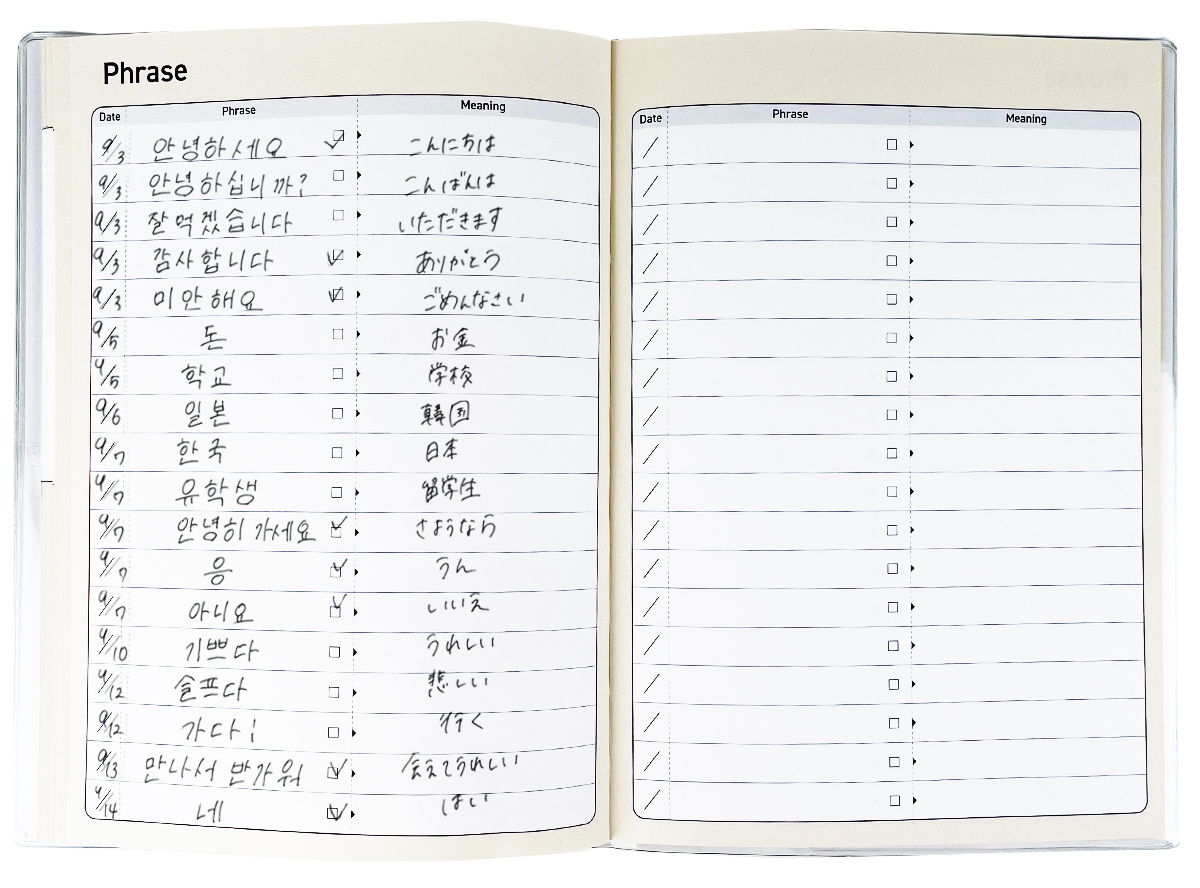 Phrase
Date Phrase Meaning
9/3 안녕하세요 こんにちは
9/3 안녕하십니까? こんばんは
9/3 잘먹겠습니다 いただきます
9/3 감사합니다 ありがとう
9/3 미안해요 ごめんなさい
9/5 돈 お金
9/5 학교 学校
9/6 일본 韓国
9/7 한국 日本
9/7 유학생 留学生
9/7 안녕히 가세요 さようなら
9/7 응 うん
9/7 아니요 いいえ
9/10 기쁘다 うれしい
9/12 슬프다 悲しい
9/12 가다 行く
9/13 만나서 반가워 会えてうれしい
9/14 네 はい
Date Phrase Meaning